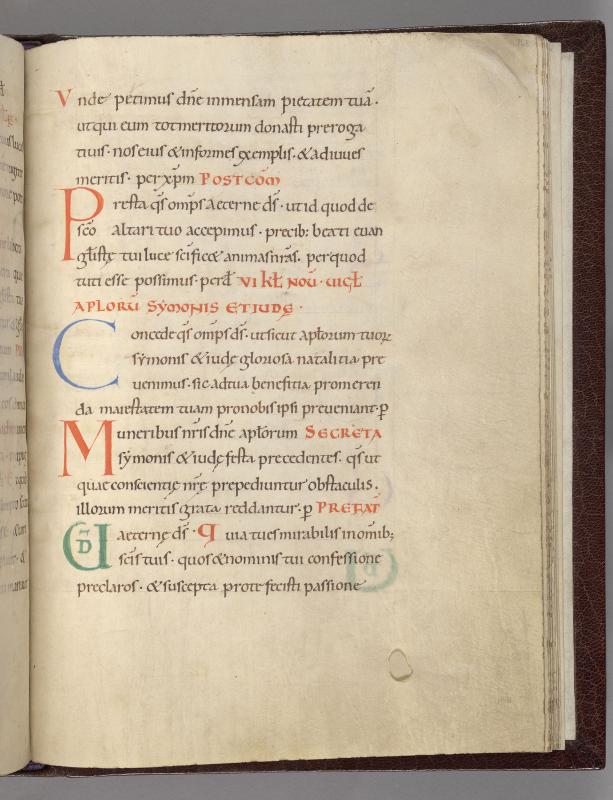 Vnde petimus dñe inmensam pietatem tuã.
ut qui eum tot meritorum donasti preroga
tiuis. nos eius & informes exemplis. & adiuues
meritis. per xp̃m POSTCOM̃
Presta qs omps aeterne ds̃. ut id quod de
sc̃o altari tuo accepimus. precib; beati euan
głistę tui lucę sc̃ificet animas nr̃as. per quod
tuti esse possimus. per d̃ VI KŁ NOṼ. VIGŁ
APLORŨ SYMONIS ET IUDĘ.
Concede qs omps ds̃. ut sicut apłorum tuoꝝ
symonis & iudę gloriosa natalitia pre
uenimus. sic ad tua benefitia promeren
da maiestatem tuam pro nobis ipsi preueniant. p̃
Muneribus nr̃is dñe apłorum SECRETA
symonis & iudę festa precedentes. qs ut
quae conscientię nr̃ę prepediuntur obstaculis.
illorum meritis grata reddantur. p̃ PREFAT̃
UD aeterne ds̃. Quia tu es mirabilis in omĩb;
sc̃is tuis. quos & nominis tui confessione
preclaros. & suscepta pro te fecisti passione